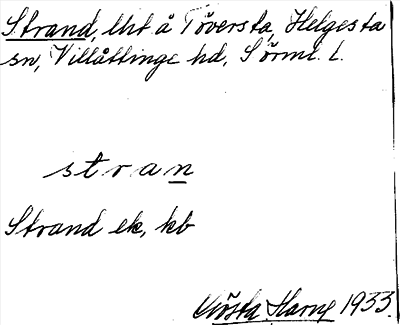 Strand, lht å Töversta, Helgesta
sn, Villåttinge hd, Sörml. l.
stran
Strand ek, kb
Gösta Harne 1933.